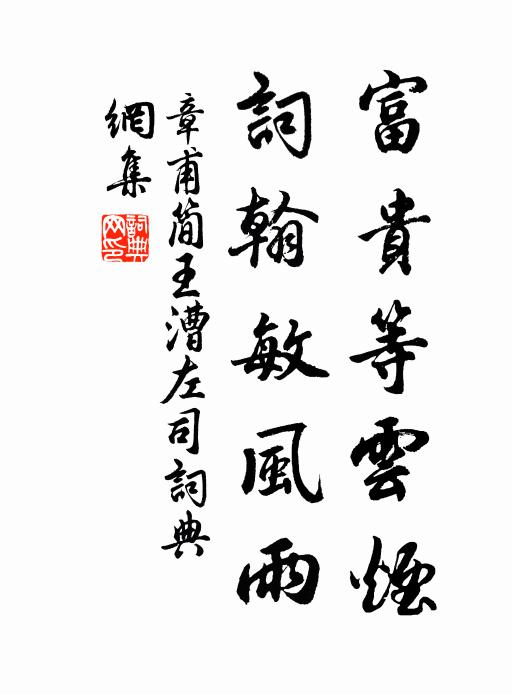 富貴等雲煙
詞翰敏風雨
章甫简王漕左司詞典
網集
詞典網印